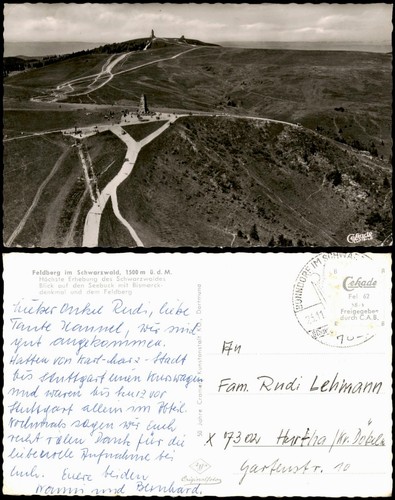 Cekade
Feldberg im Schwarzwald, 1500 m ü. d. M.
Höchste Erhebung des Schwarzwaldes
Blick auf den Seebuck mit Bismarck-
denkmal und dem Feldberg
Lieber Onkel Rudi, liebe
Tante Hannel, wir sind
gut angekommen.
Hatten von Karl-Marx-Stadt
bis Stuttgart einen Kurswagen
und waren bis kurz vor
Stuttgart allein im Abteil.
Nochmals sagen wir Euch
recht vielen Dank für die
liebevolle Aufnahme bei
Euch. Eure beiden
und Bernhard.
Cekade
Fel 62
Freigegeben
durch C.A.B.
An
Fam. Rudi Lehmann
X 7302 Hartha (Kr. Döbeln
Gartenstr. 10